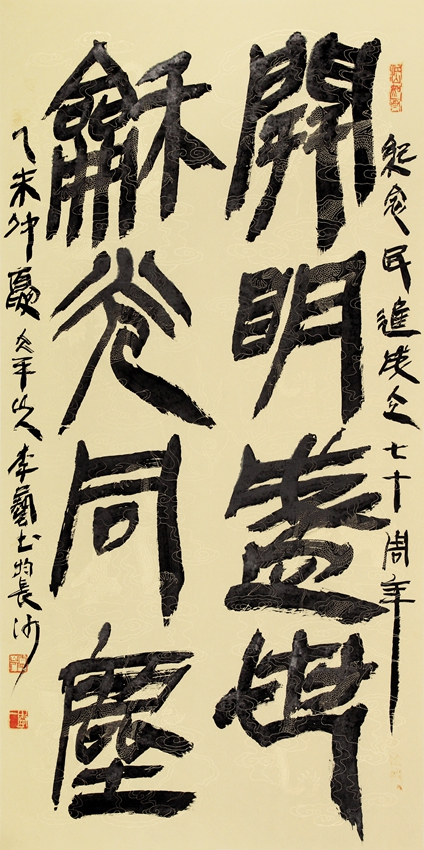 紀念民進成立七十周年
開明盛世
龢光同塵
乙未仲夏平山人李藝書於長沙